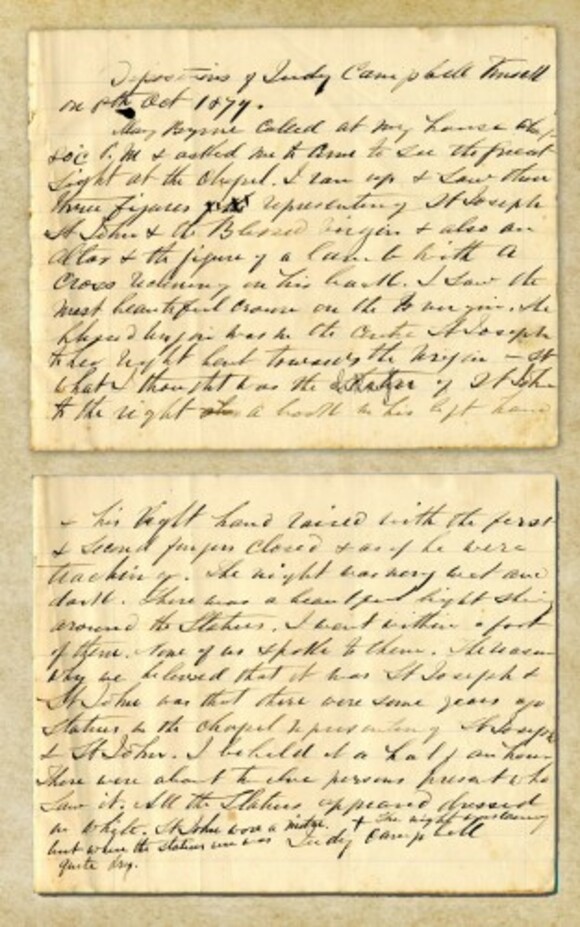 Depositions of Judy Campbell himself
on 8th Oct 1879.
May Byrne Called at my house abou
P. M & asked me to Come to see the great
Sight at the Chapel. I ran up & Saw then
three figures representing St Joseph
St John & the Blessed Virgin & also an
Altar & the figure of a lamb with a
Cross reclining on his back. I Saw the
most beautiful Crown on the B virgin. The
blessed virgin was in the Centre St Joseph
to her right bent towards the virgin - St
what I thought was the of St John
to the right a book in his left hand
& his Right hand raised with the first
& Second fingers Closed & as if he were
teaching. The night was very wet and
dark. There was a beautiful light Shin
around the Statues. I went within a foot
of them. None of us spoke to them. The reason
why we believed that it was St Joseph &
St John was that there were some years ago
Statues in the Chapel representing St Joseph
& St John. I beheld it a half an hour
There were about twelve persons present who
Saw it. All the Statues appeared dressed
in white. St John wore a mitre. + The night was
but where the statues were was
Judy Campbell
quite dry.